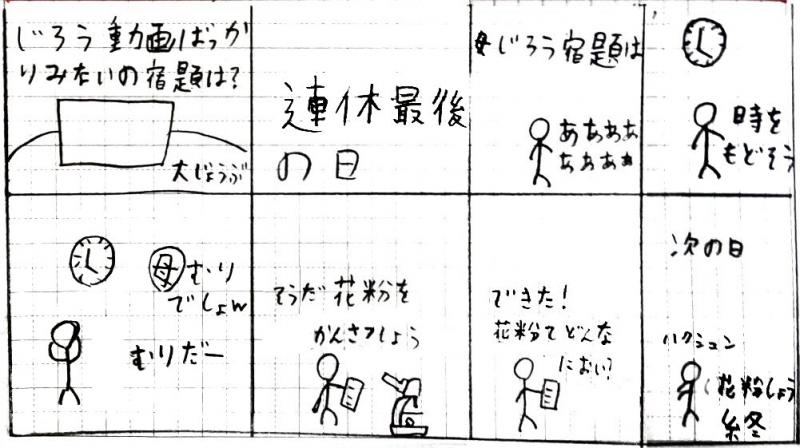 じろう動画ばっか
りみたいの宿題は?
大じょうぶ
連休最後
の日
母じろう宿題は
ああああ
ああああ
時を
もどそう
母むり
でしょw
むりだー
そうだ花粉を
かんさつしよう
できた!
花粉てどんな
におい?
次の日
ハクシュン
花粉しょう
終